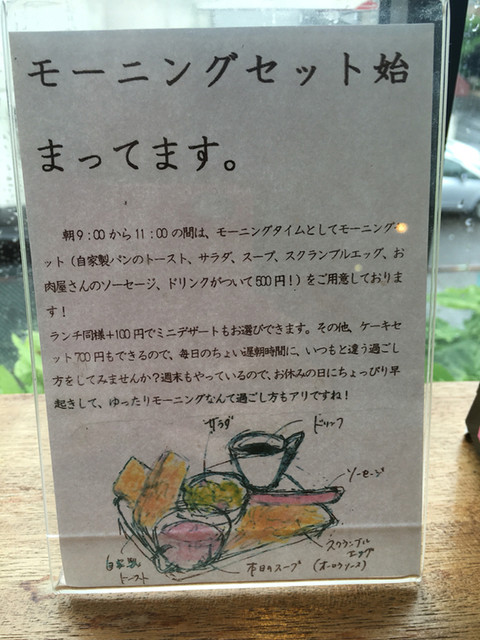 モーニングセット始
まってます。
朝9:00から11:00の間は、モーニングタイムとしてモーニング
ット（自家製パンのトースト、サラダ、スープ、スクランブルエッグ、お
肉屋さんのソーセージ、ドリンクがついて500円！）をご用意しておりま
す！
ランチ同様+100円でミニデザートもお選びできます。その他、ケーキセ
ット700円もできるので、毎日のちょい遅朝時間に、いつもと違う過ごし
方をしてみませんか？週末もやっているので、お休みの日にちょっぴり早
起きして、ゆったりモーニングなんて過ごし方もアリですね！
サラダ
ドリンク
ソーセージ
スクランブル
エッグ
(オーロラソース)
本日のスープ
自家製
トースト